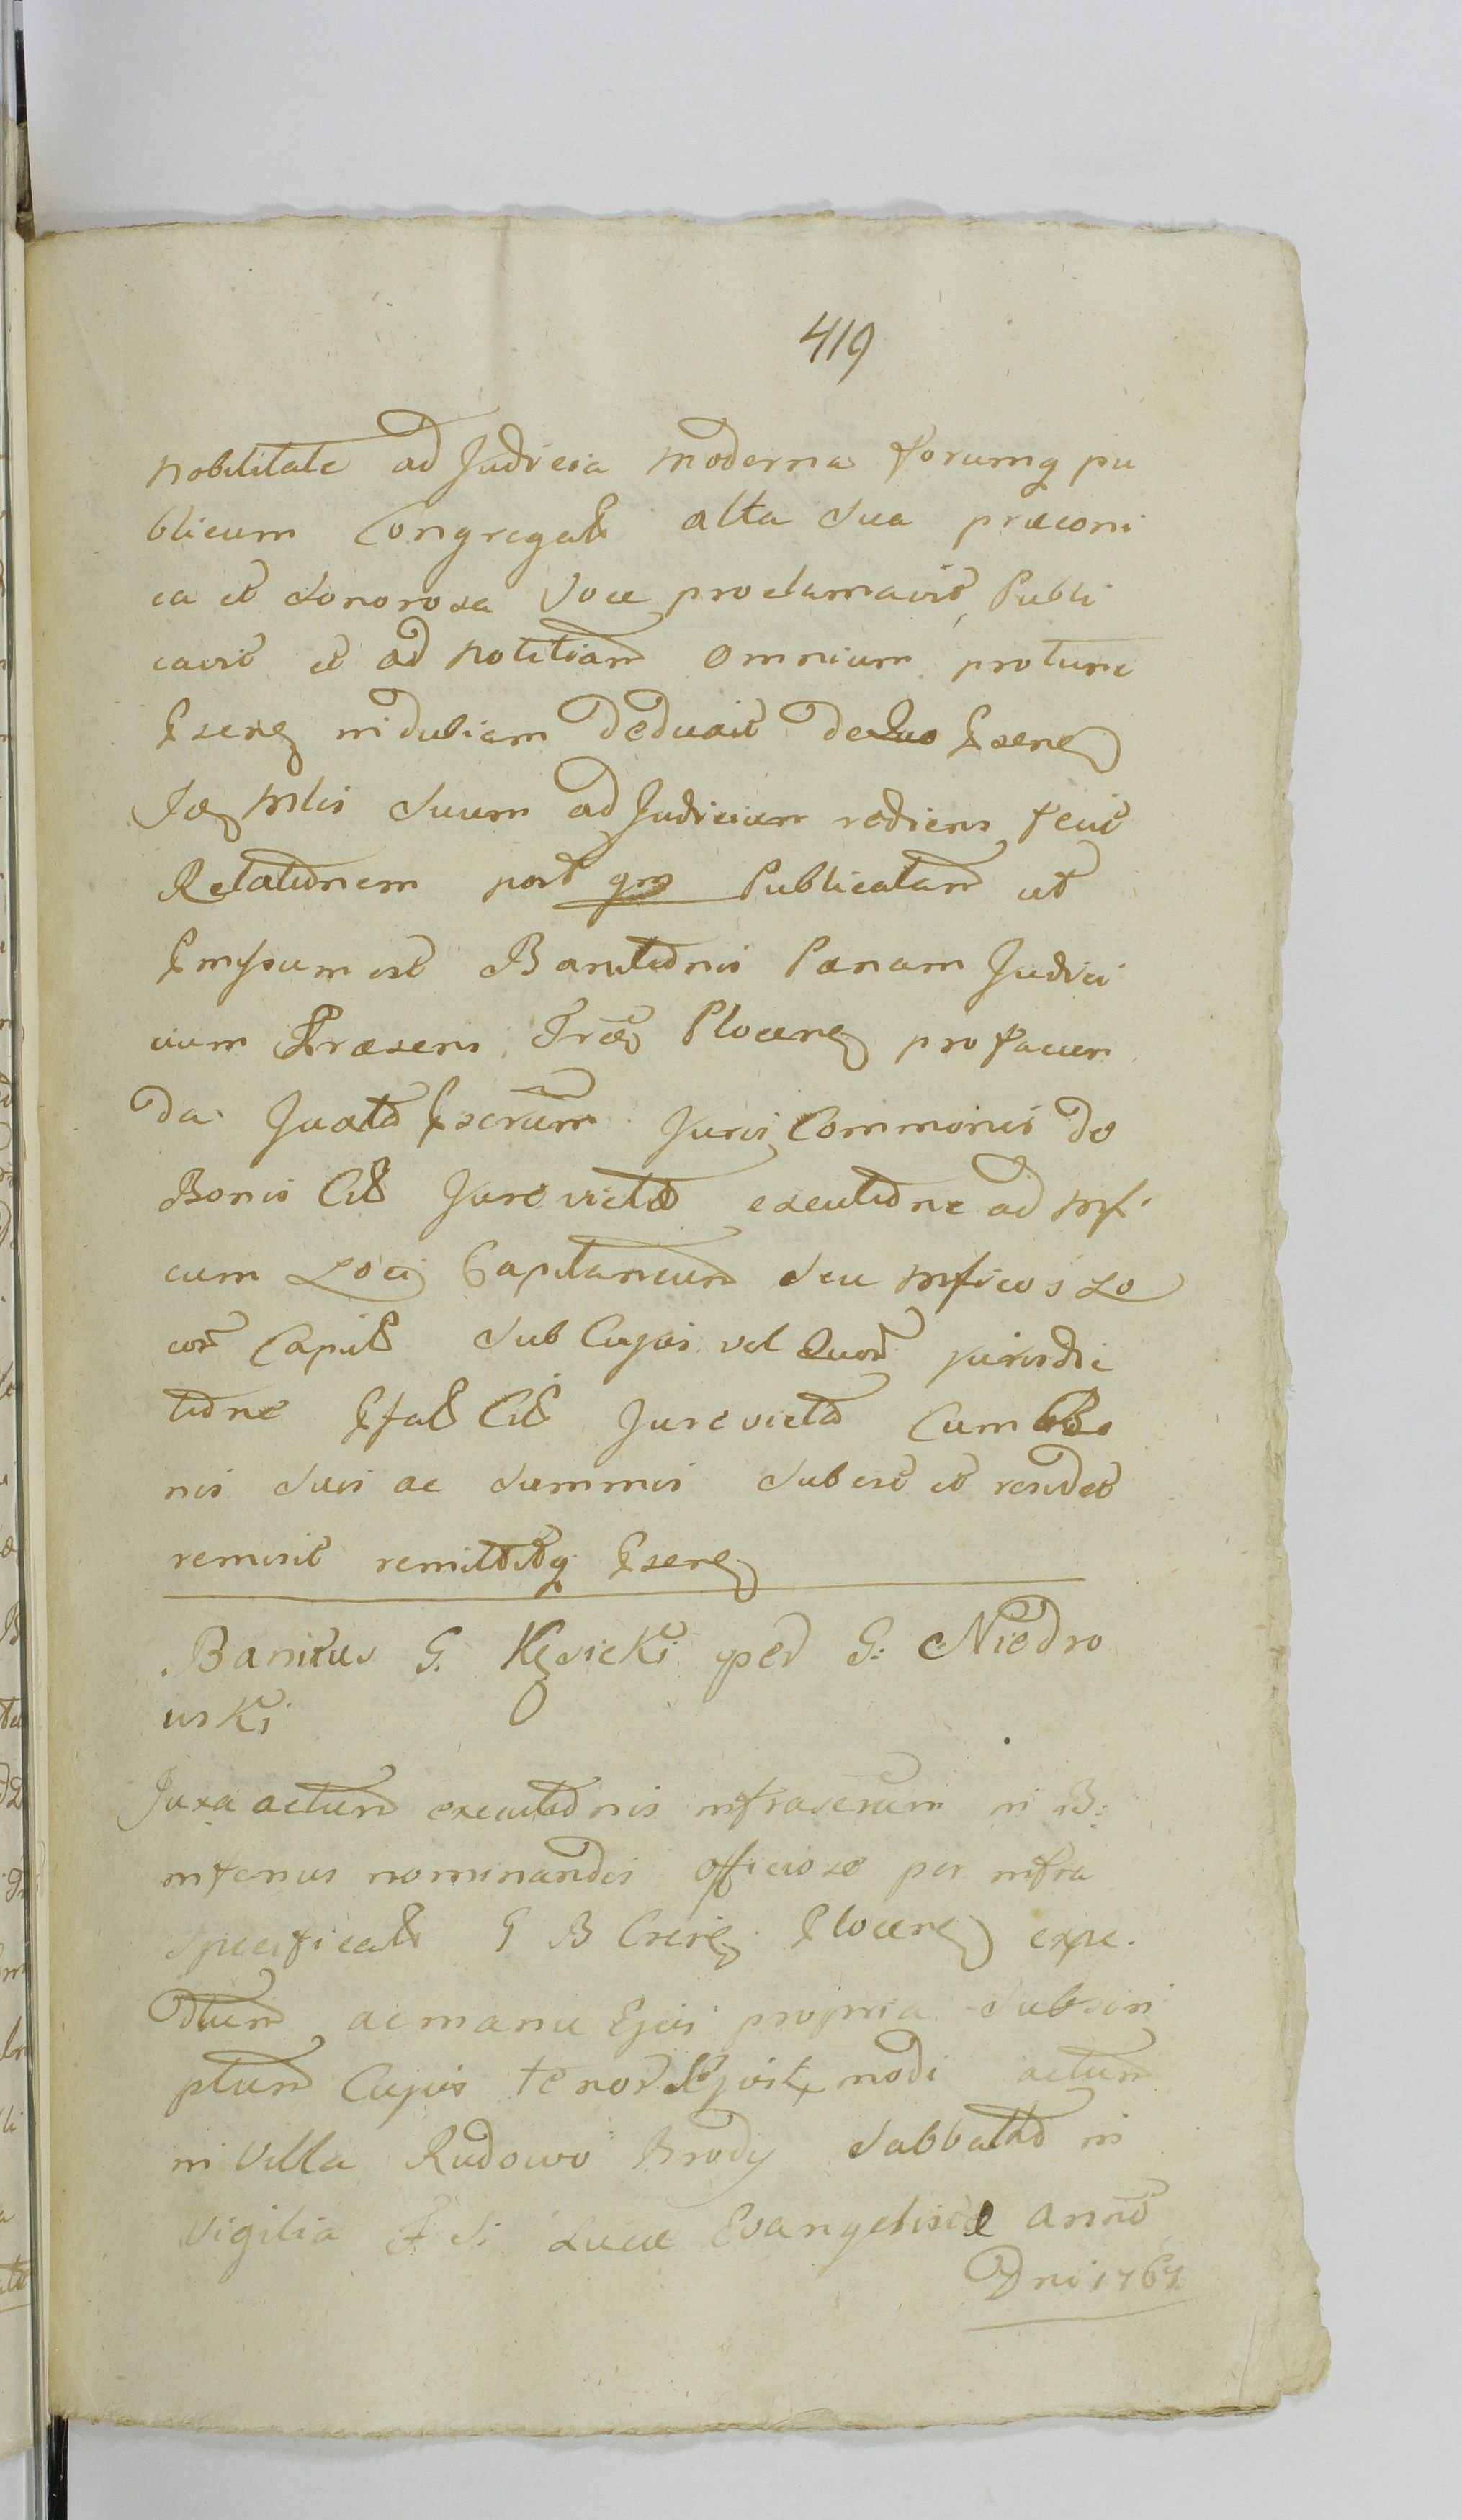 419
nobilitate ad Judicia moderna forumq pu
blicum Congregat alta sua præconi
ca et sonorosa Voce proclamavit, Publi
cavit et ad notitiam omnium protunc
indubiam deduxit de quo
Mlis suum ad Judicium rediens fecit
Relationem post qm Publicatam ut
Emissum est Banitionis Pœnam Judici
cium Præsens Plocen pro facien
da Juxta Juris Communis de
Bonis Cit Jurevicta executione ad Mfi
cum Loci Capitaneum seu Mficos Lo
cor Capit sub Cujus vel Quor jurisdic
tione Cit Jurevicta Cum Bo
nis suis ac summis subest et residet
remisit remittitq
Banitus G. Kęsicki per G: Niedro
wski
Juxa actum executionis infrascrium in B:
inferius nominandis officiose per infra
specificat G B Plocen expe
ditum ac manu Ejus propria subscri
ptum Cujus tenor modi actum
in Villa Rudowo Brody Sabbatho in
Vigilia F S: Lucæ Evangelistæ anno
Dni 1767.